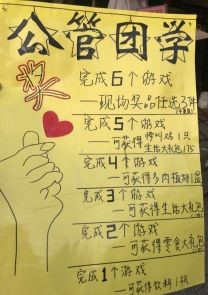 公管团学
奖
完成6个游戏
—现场奖品任选3件
完成5个游戏
—可获得 惨叫鸡1只
生活大礼包1份
完成4个游戏
—可获得多肉植物1盆
完成3个游戏
—可获得生活大礼包
完成2个游戏
—可获得零食大礼包
完成1个游戏
—可获得饮料1瓶